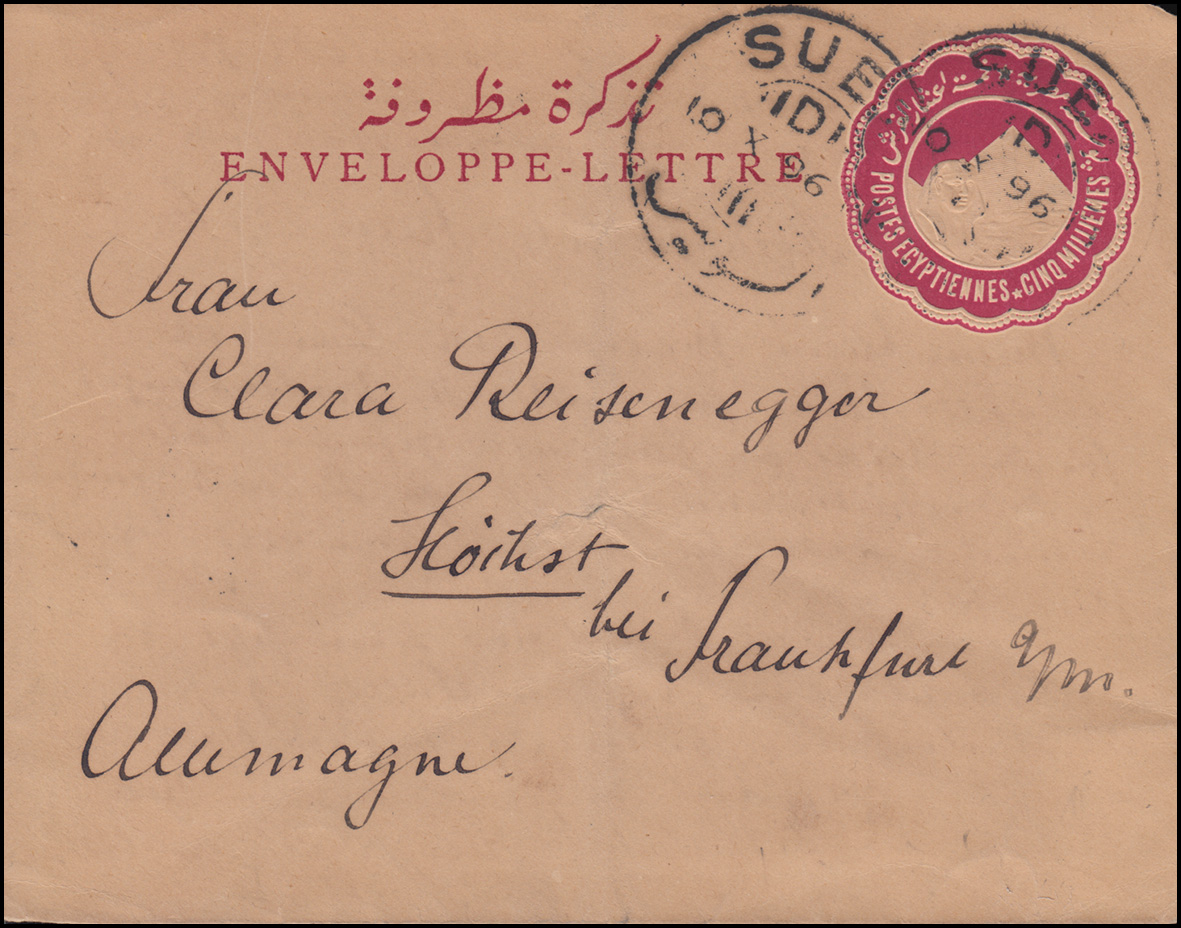 تذكرة مظروفة
ENVELOPPE-LETTRE
SUE
10 X 96
SUE
96
POSTES EGYPTIENNES ★ CINQ MILLIÈMES
Frau
Clara Reisenegger
Höchst
bei Frankfurt a/m.
Allemagne.